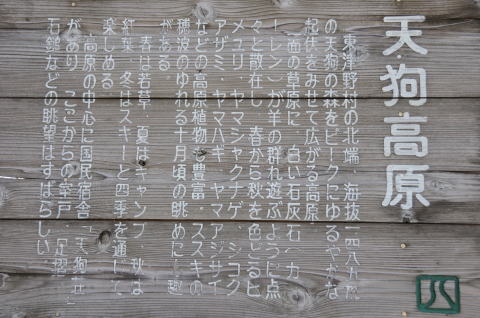 天狗高原
東津野村の北端、海抜一四八五m
の天狗の森をピークにゆるやかな
起伏をみせて広がる高原。
一面の草原に、白い石灰石(カ
レン)が羊の群れ遊ぶように点
々と散在し、春から秋を色どるヒ
メユリ、ヤマシャクナゲ、シコク
アザミ、ヤマハギ、ヤマアジサイ
などの高原植物も豊富。ススキの
穂波のゆれる十月頃の眺めは趣
がある。
春は若草、夏はキャンプ、秋は
紅葉、冬はスキーと四季を通じて
楽しめる。
高原の中心に国民宿舎「天狗荘」
があり、ここからの室戸、足摺、
石鎚などの眺望はすばらしい。